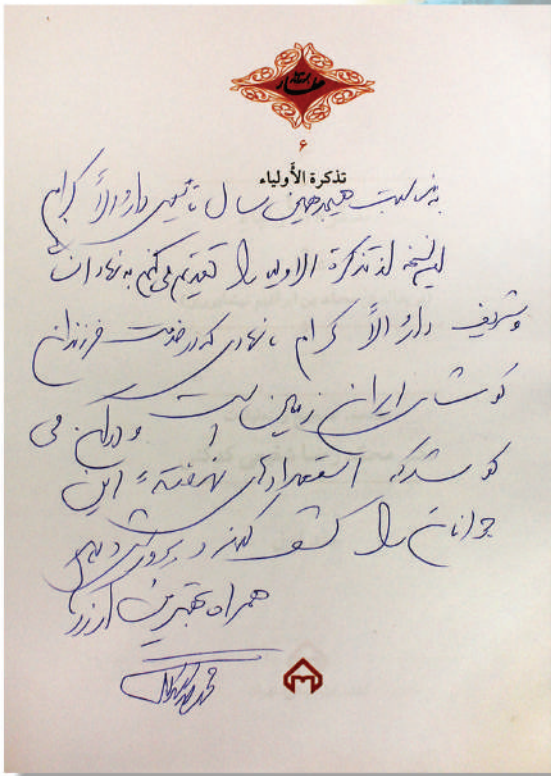 عطار
۶
تذکرة الأولیاء
به مناسبت هیجدهمین سال تأسیس دارُالاِکرام
این نسخه از تذکرة الاولیاء را تقدیم می‌کنم به نهاد انسانی
و شریف دارُالاِکرام، نهادی که در خدمت فرزندان
کوشای ایران زمین است و در آن می
کوشند که استعدادهای نهفتهٔ این
جوانان را کشف کنند و پرورش دهند
همراه بهترین آرزوها